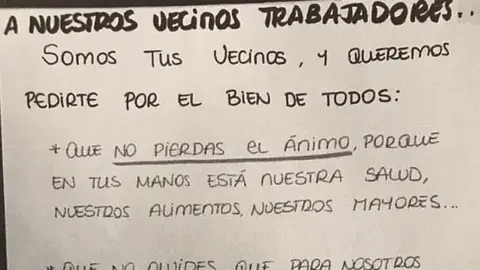 A NUESTROS VECINOS TRABAJADORES..
SOMOS TUS VECINOS, Y QUEREMOS
PEDIRTE POR EL BIEN DE TODOS:
* QUE NO PIERDAS EL ÁNIMO, PORQUE
EN TUS MANOS ESTÁ NUESTRA SALUD,
NUESTROS ALIMENTOS, NUESTROS MAYORES...
* QUE NO OLVIDES QUE PARA NOSOTROS